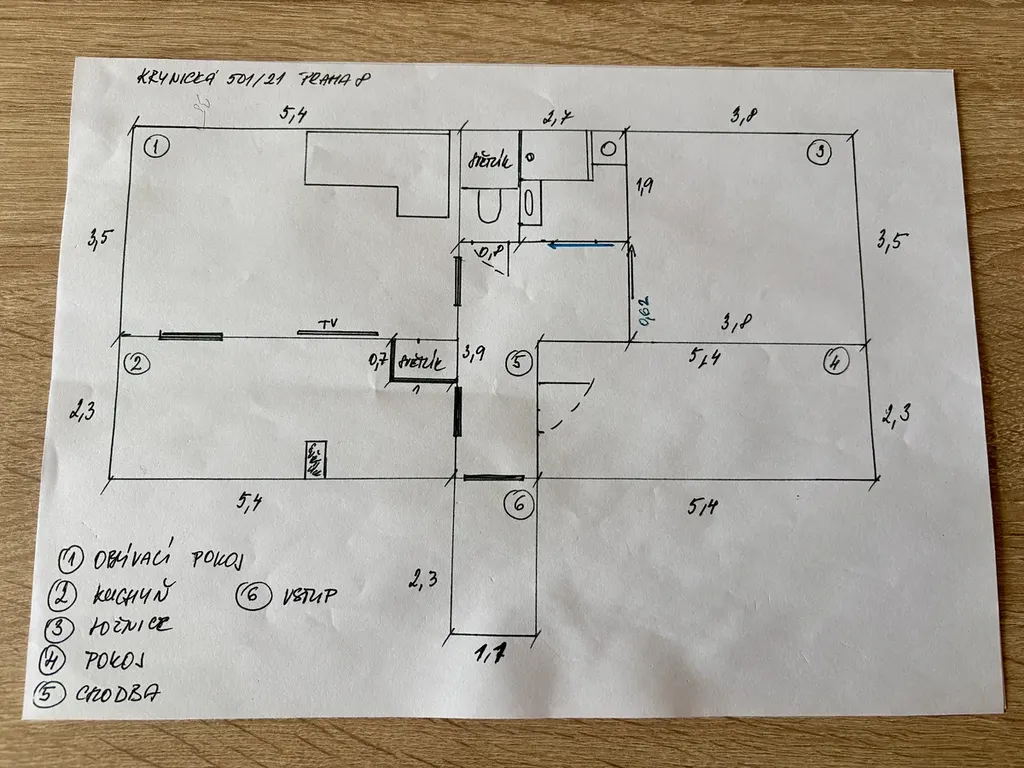 KRYNICKÁ 501/21 PRAHA 8
5,4
2,7
3,8
1
3
1,9
3,5
3,5
0,8
0,62
TV
3,8
2
0,7
3,9
5
5,4
4
1
2,3
2,3
5,4
6
5,4
1 OBÝVACÍ POKOJ
2 KUCHYŇ
6 VSTUP
2,3
3 LOŽNICE
4 POKOJ
1,7
5 CHODBA